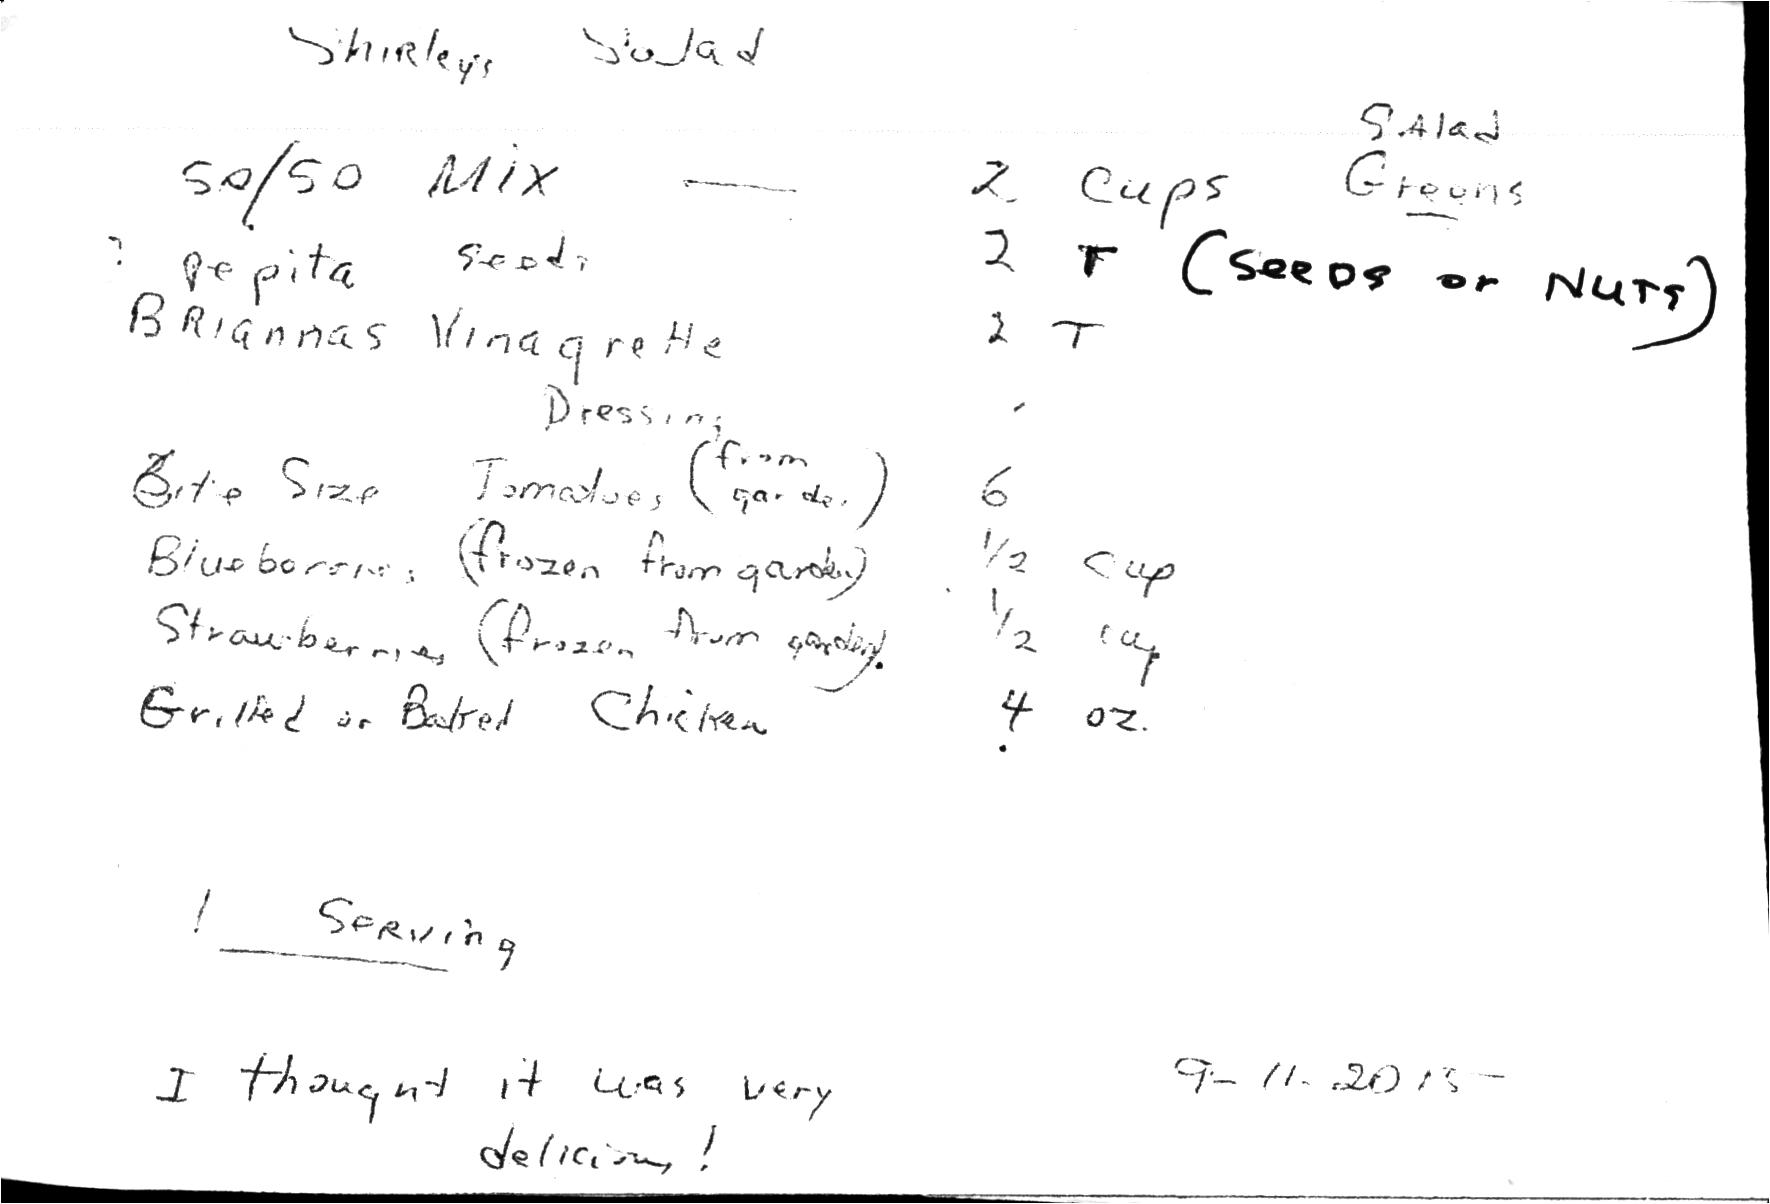 Shirleys Salad
Salad
50/50 Mix — 2 Cups Greens
? Pepita seeds 2 T (SEEDS or NUTS)
BRIannas Vinaqrette 2 T
Dressing
Bite Size Tomatoes (from garden) 6
Blueberries (frozen from garden) 1/2 cup
Strawberries (frozen from garden) 1/2 cup
Grilled or Baked Chicken 4 oz.
1 Serving
I thought it was very 9-11-2015
delicious!